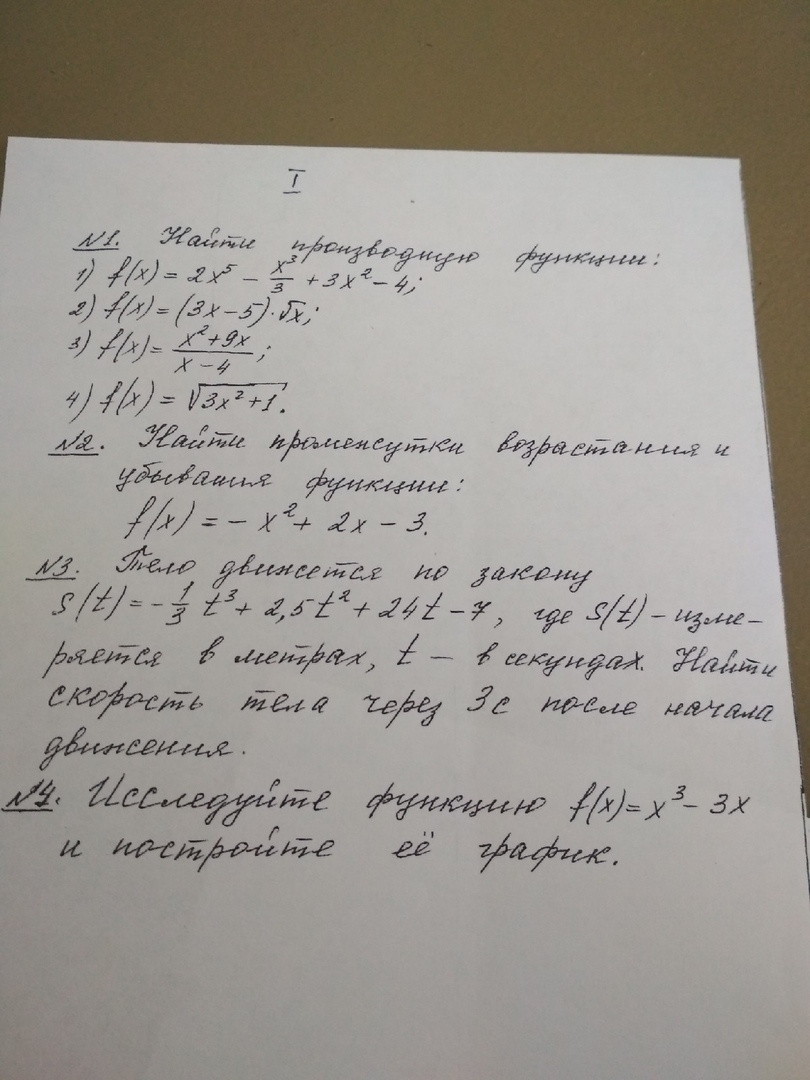 I
№1. Найти производную функции:
1) f(x) = 2x⁵ - x³/3 + 3x² - 4;
2) f(x) = (3x - 5)·√x;
3) f(x) = (x² + 9x)/(x - 4);
4) f(x) = √(3x² + 1).
№2. Найти промежутки возрастания и
убывания функции:
f(x) = - x² + 2x - 3.
№3. Тело движется по закону
S(t) = - 1/3 t³ + 2,5t² + 24t - 7, где S(t) - изме-
ряется в метрах, t - в секундах. Найти
скорость тела через 3с после начала
движения.
№4. Исследуйте функцию f(x) = x³ - 3x
и постройте её график.